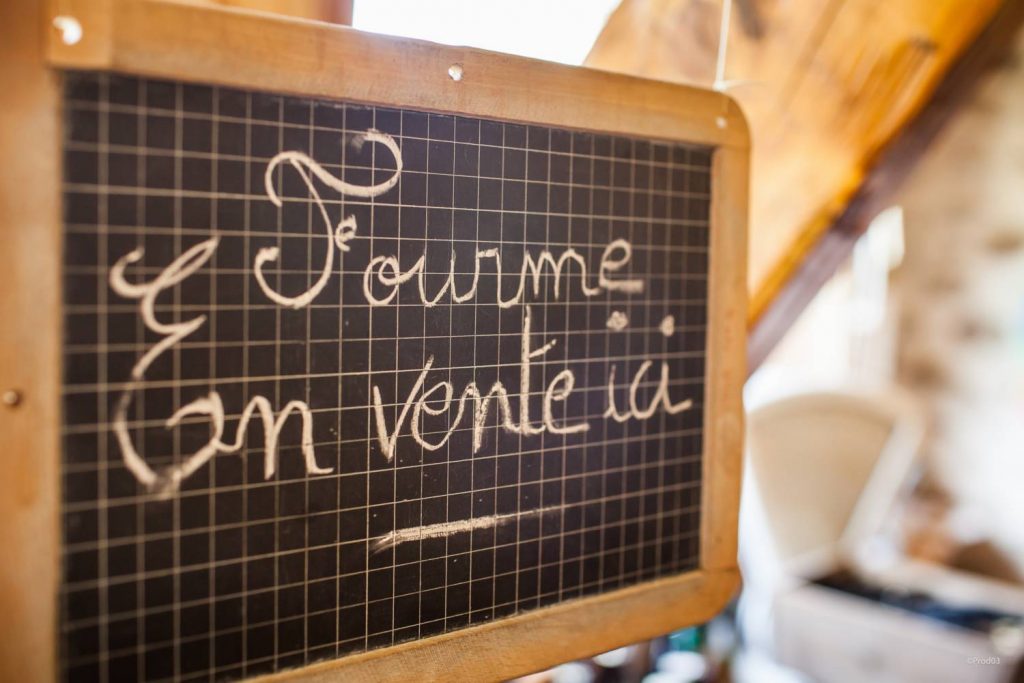 Fourme
En vente ici
©Prod03